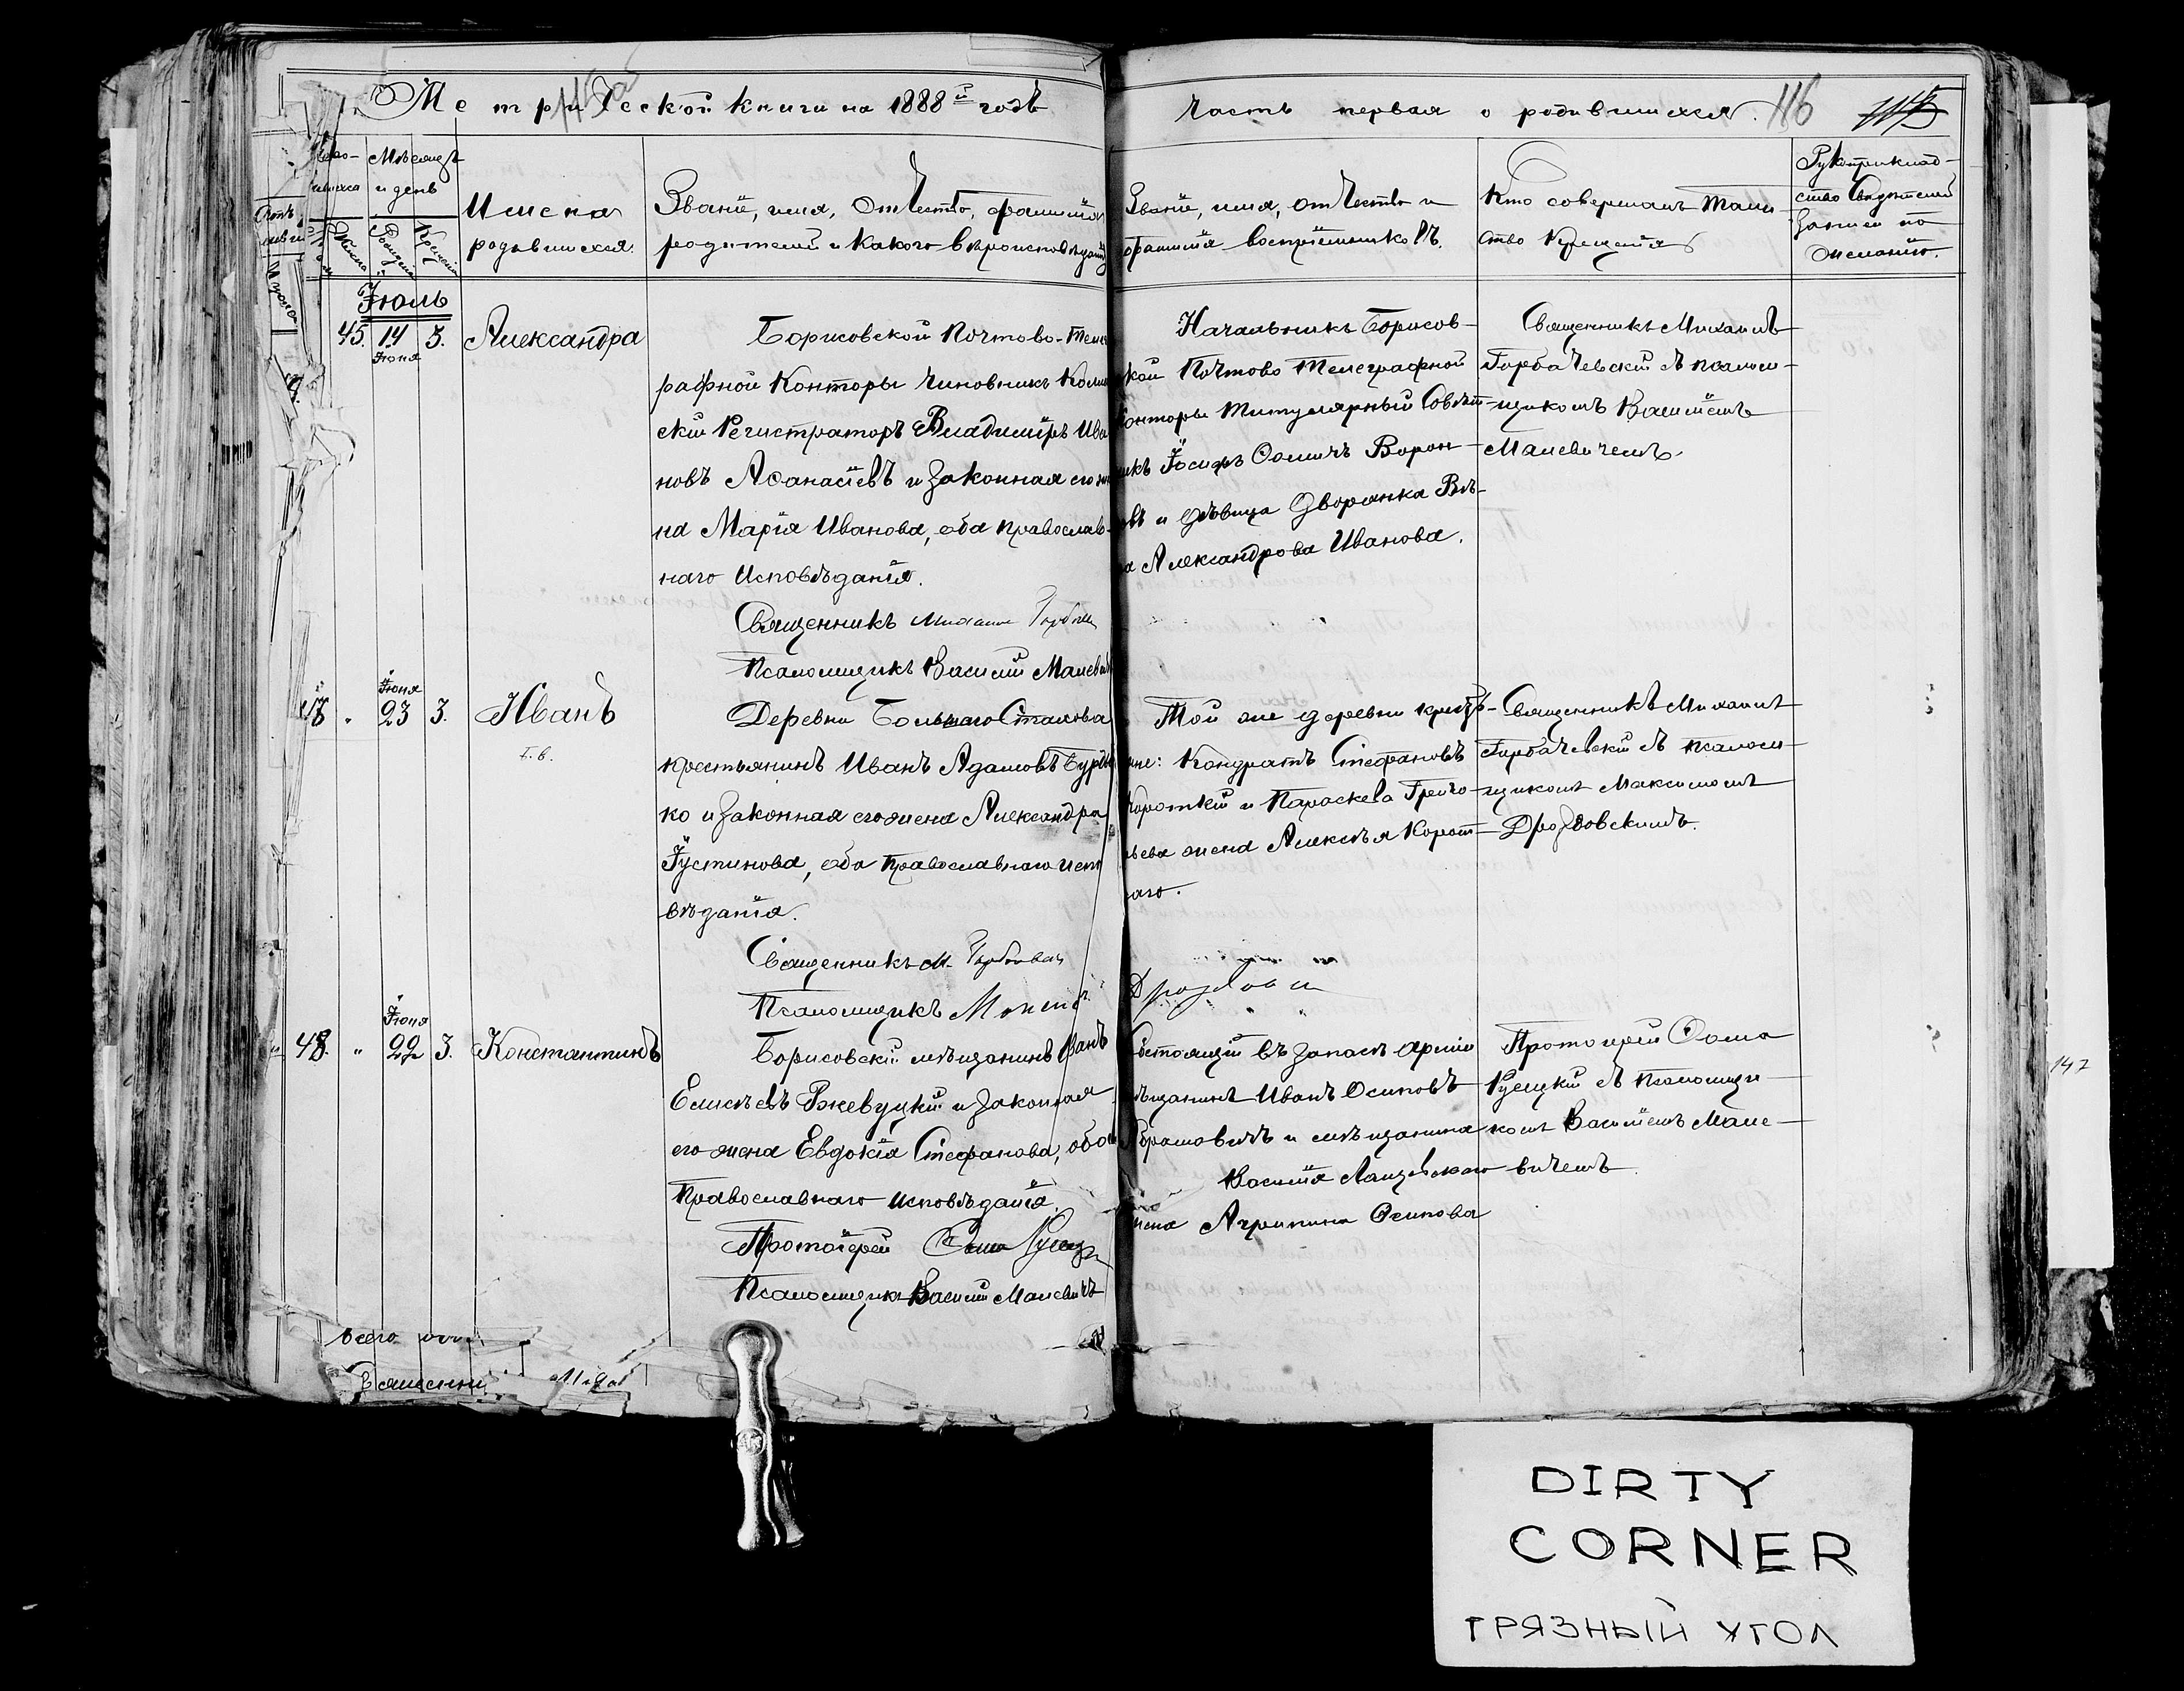 Метрической книги на 1888й годъ
Часть первая о родившихся. 116 115
Мѣсяцъ и день
Рожденія
Крещенія
Имена
родившихся.
Званіе, имя, отчество, фамилія
родителей и какого вѣроисповѣданія
Званіе, имя, отчество и
фамилія воспріемниковъ.
Кто совершалъ Таин-
ство Крещенія
Рукоприклад-
ство Свидѣтелей
записи по
желанію.
Іюль
45. 14 Іюня 3. Александра
Борисовской Почтово-Теле
рафной Конторы чиновникъ Колле
скій Регистраторъ Владиміръ Ива
новъ Аѳанасіевъ и законная его же
на Марія Иванова, оба православ-
наго исповѣданія.
Священникъ Михаилъ Горбач
Псаломщикъ Василій Малевичъ
Начальникъ Борисов-
кой Почтово Телеграфной
Конторы Титулярный Совѣт-
никъ Іосифъ Ѳомичъ Ворон-
овъ и дѣвица Дворянка Вѣ-
ра Александрова Иванова.
Священникъ Михаилъ
Горбачевскій съ псалом-
щикомъ Василіемъ
Малевичемъ.
" Іюня 23 3. Иванъ
Деревни Большаго Стахова
крестьянинъ Иванъ Адамовъ Бурд
ко и законная его жена Александра
Іустинова, оба православнаго испо
вѣданія.
Священникъ М. Горбачев
Псаломщикъ
Той же деревни крестья-
не: Кондратъ Стефановъ
Короткій и Параскева Григо-
рьева жена Алексѣя Корот-
каго.
Священникъ Михаилъ
Горбачевскій съ Псалом-
щикомъ Максимомъ
Дроздовскимъ.
48. " Іюня 22 3. Константинъ
Борисовскій мѣщанинъ Иванъ
Елисѣевъ Ржевуцкій и законная
его жена Евдокія Стефанова, оба
Православнаго исповѣданія.
Протоіерей Ѳома
Псаломщикъ Василій Малевичъ
Состоящій въ запасѣ арміи
мѣщанинъ Иванъ Осиповъ
Абрамовичъ и мѣщанина
Василія
жена Агрипина Осипова
Протоіерей Ѳома
съ псаломщи-
комъ Василіемъ Мале-
вичемъ.
Всего
147
DIRTY
CORNER
ГРЯЗНЫЙ УГОЛ